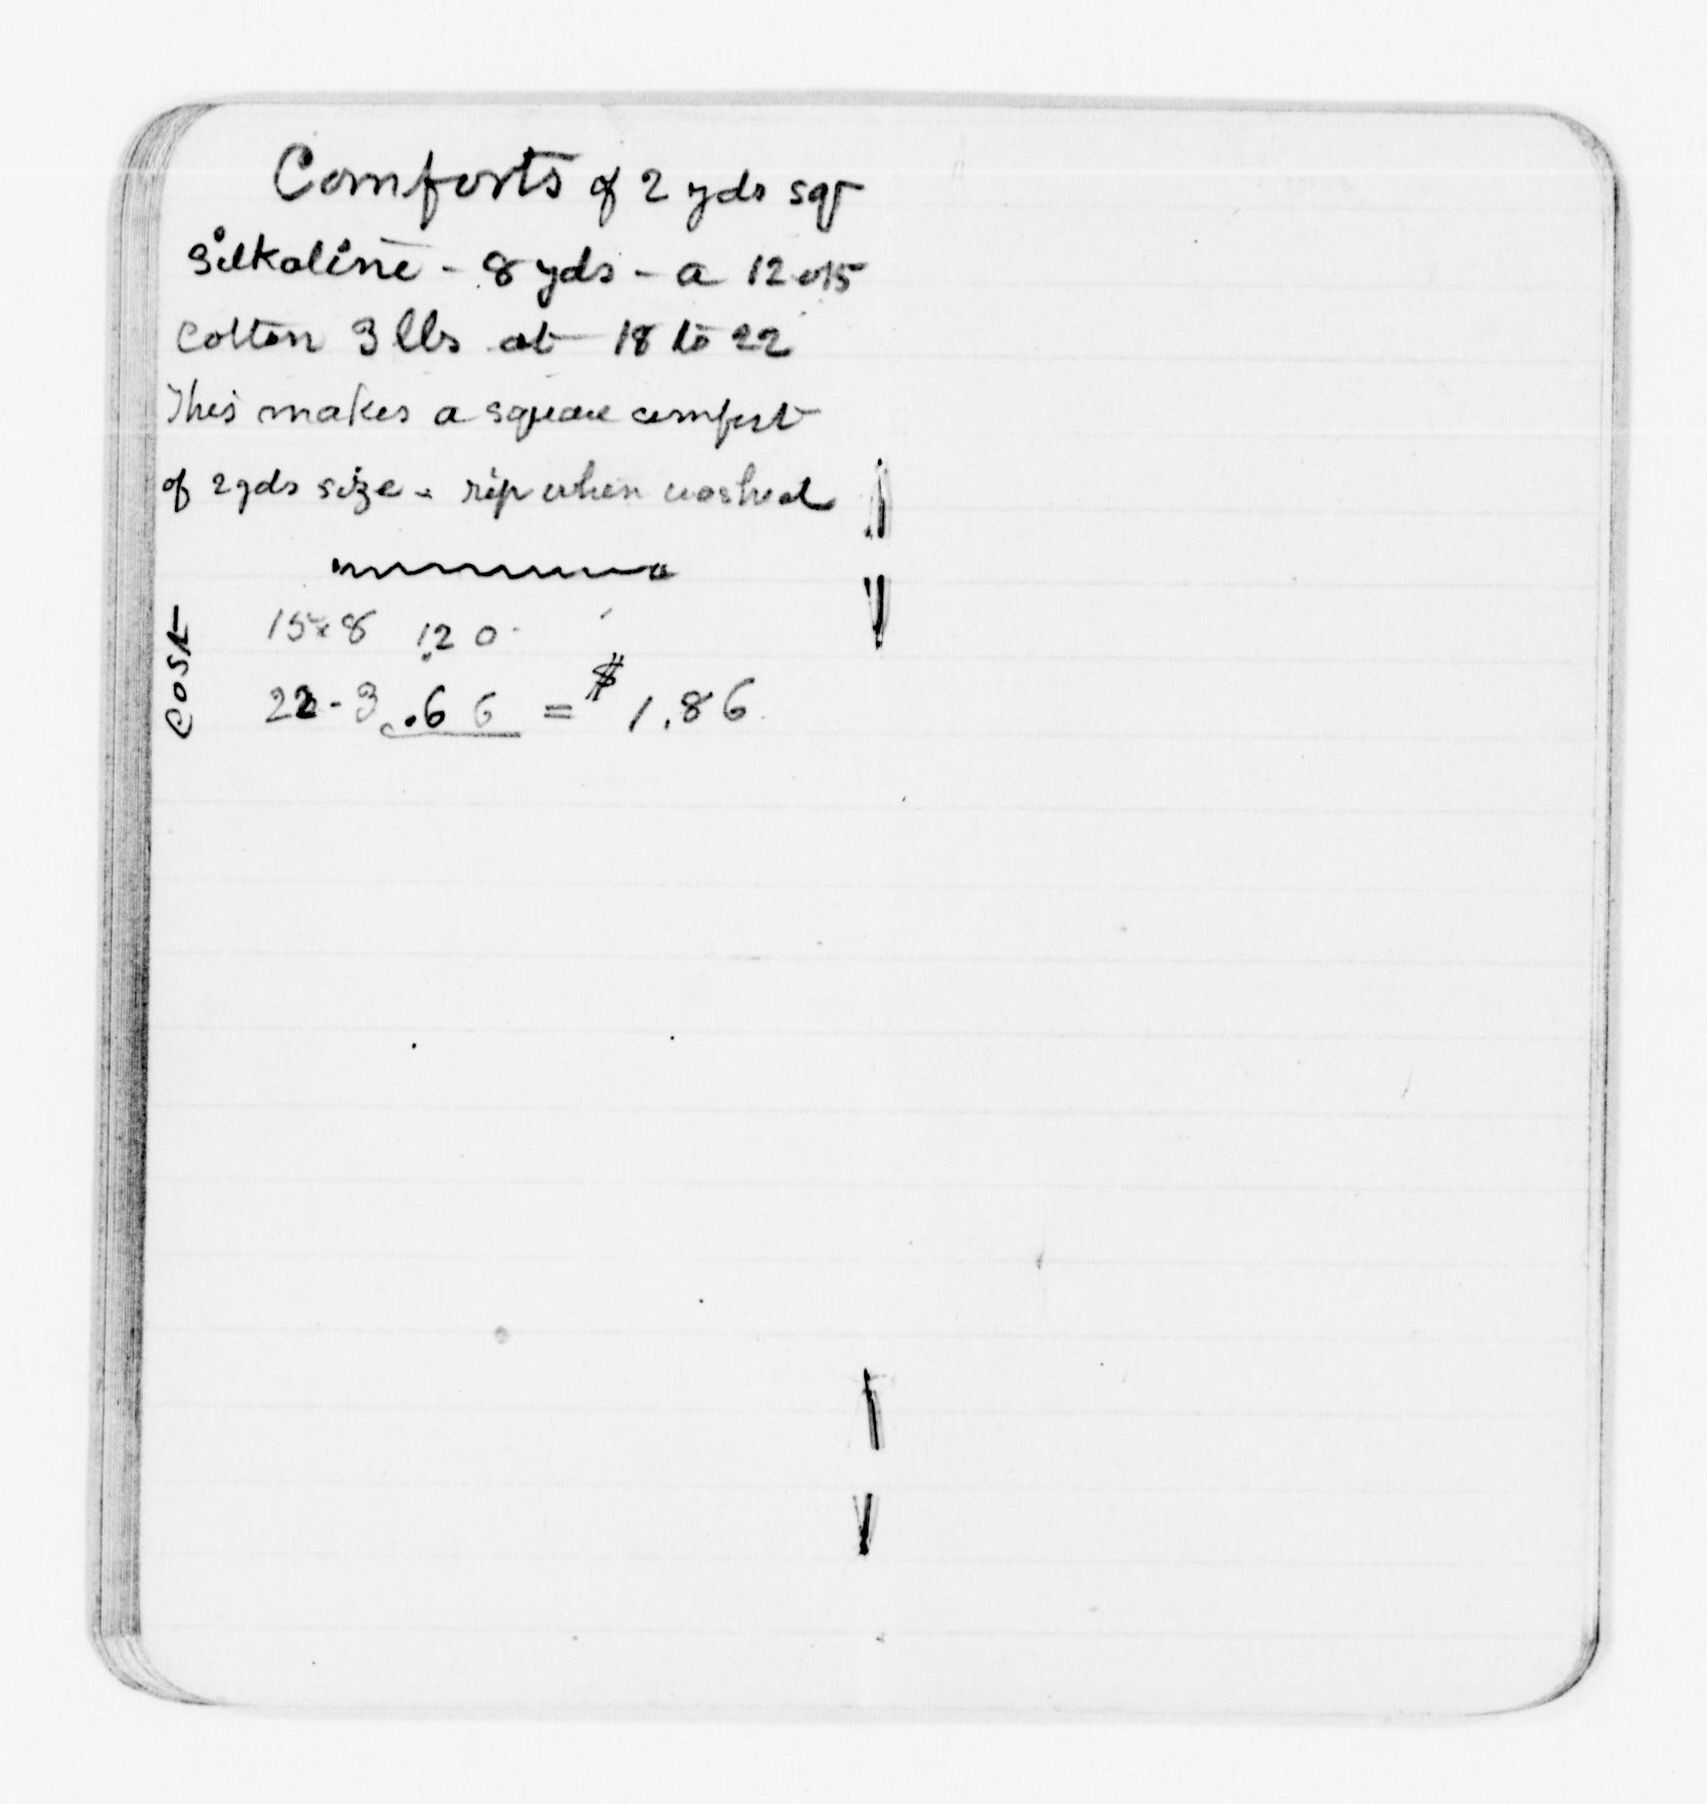 Comforts of 2 yds sqr
Silkaline - 8 yds - a 12 or 15
Cotton 3 lbs at 18 to 22
This makes a square comfort
of 2 yds size - rip when washed
Cost
15 x 8 1.20
22 - 3 .66 = $1.86